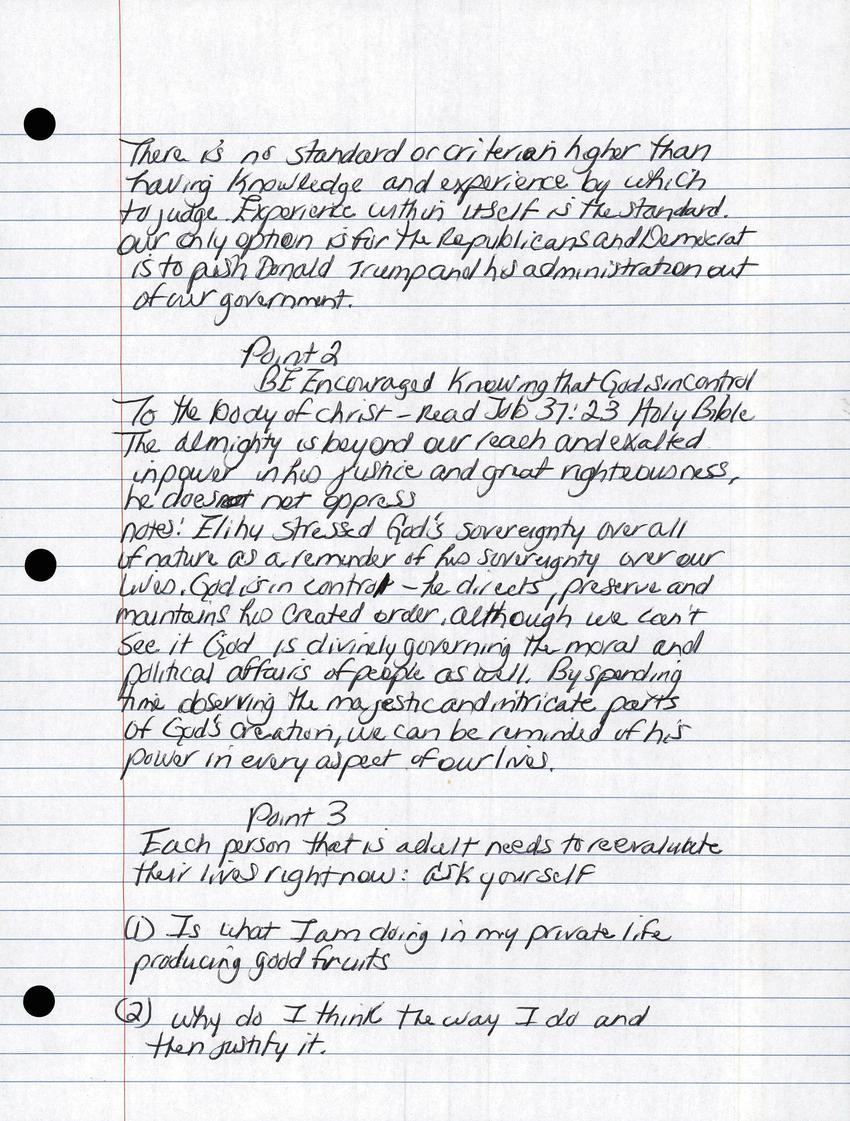 There is no standard or criterion higher than
having knowledge and experience by which
to judge. Experience within itself is the standard.
our only option is for the Republicans and Democrat
is to push Donald Trump and his administration out
of our government.
Point 2
BE Encouraged Knowing that God is in control
To the body of christ - Read Job 37:23 Holy Bible
The almighty is beyond our reach and exalted
in power in his justice and great righteousness,
he does not oppress
notes: Elihu stressed God's sovereignty over all
of nature as a reminder of his sovereignty over our
lives. God is in control - he directs, preserve and
maintains his created order, although we can't
see it God is divinely governing the moral and
political affairs of people as well. By spending
time observing the majestic and intricate parts
of God's creation, we can be reminded of his
power in every aspect of our lives.
Point 3
Each person that is adult needs to reevaluate
their lives right now: ask yourself
(1) Is what I am doing in my private life
producing good fruits
(2) why do I think the way I do and
then justify it.